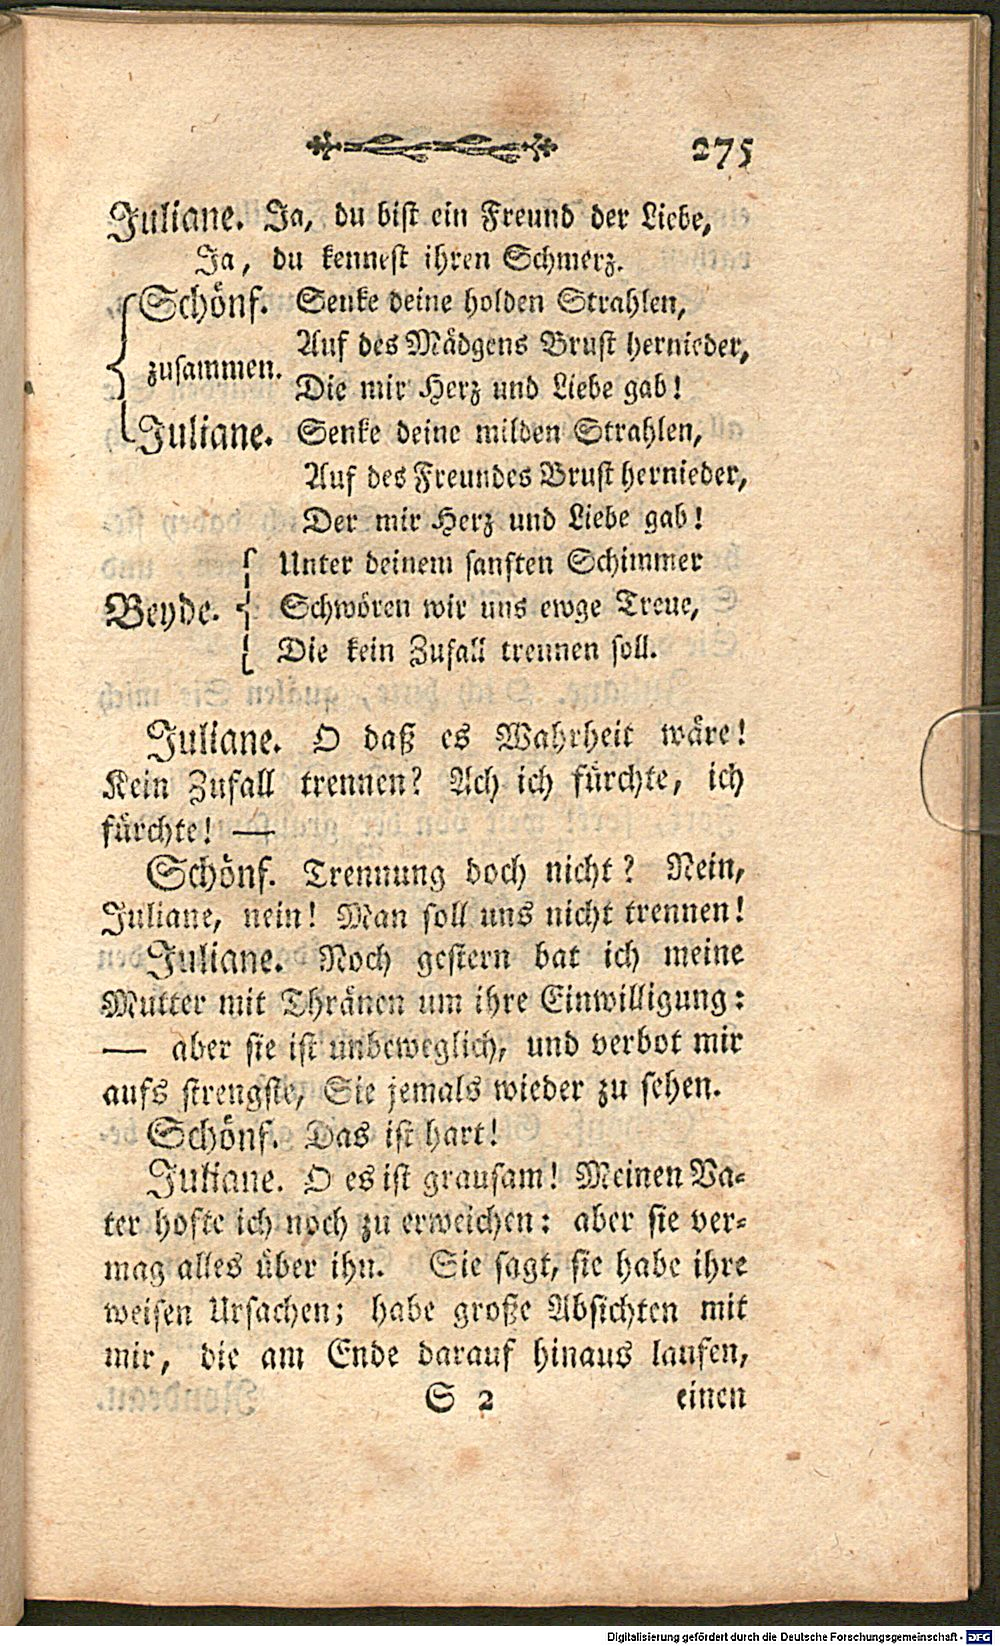 275
Juliane. Ja, du bist ein Freund der Liebe,
Ja, du kennest ihren Schmerz.
Schönf. Senke deine holden Strahlen,
Auf des Mädgens Brust hernieder,
zusammen.
Die mir Herz und Liebe gab!
Juliane. Senke deine milden Strahlen,
Auf des Freundes Brust hernieder,
Der mir Herz und Liebe gab!
Unter deinem sanften Schimmer
Beyde. Schwören wir uns ewge Treue,
Die kein Zufall trennen soll.
Juliane. O daß es Wahrheit wäre!
Kein Zufall trennen? Ach ich fürchte, ich
fürchte! —
Schönf. Trennung doch nicht? Nein,
Juliane, nein! Man soll uns nicht trennen!
Juliane. Noch gestern bat ich meine
Mutter mit Thränen um ihre Einwilligung:
— aber sie ist unbeweglich, und verbot mir
aufs strengste, Sie jemals wieder zu sehen.
Schönf. Das ist hart!
Juliane. O es ist grausam! Meinen Va-
ter hofte ich noch zu erweichen: aber sie ver-
mag alles über ihn. Sie sagt, sie habe ihre
weisen Ursachen; habe große Absichten mit
mir, die am Ende darauf hinaus laufen,
S 2 einen
Digitalisierung gefördert durch die Deutsche Forschungsgemeinschaft - DFG